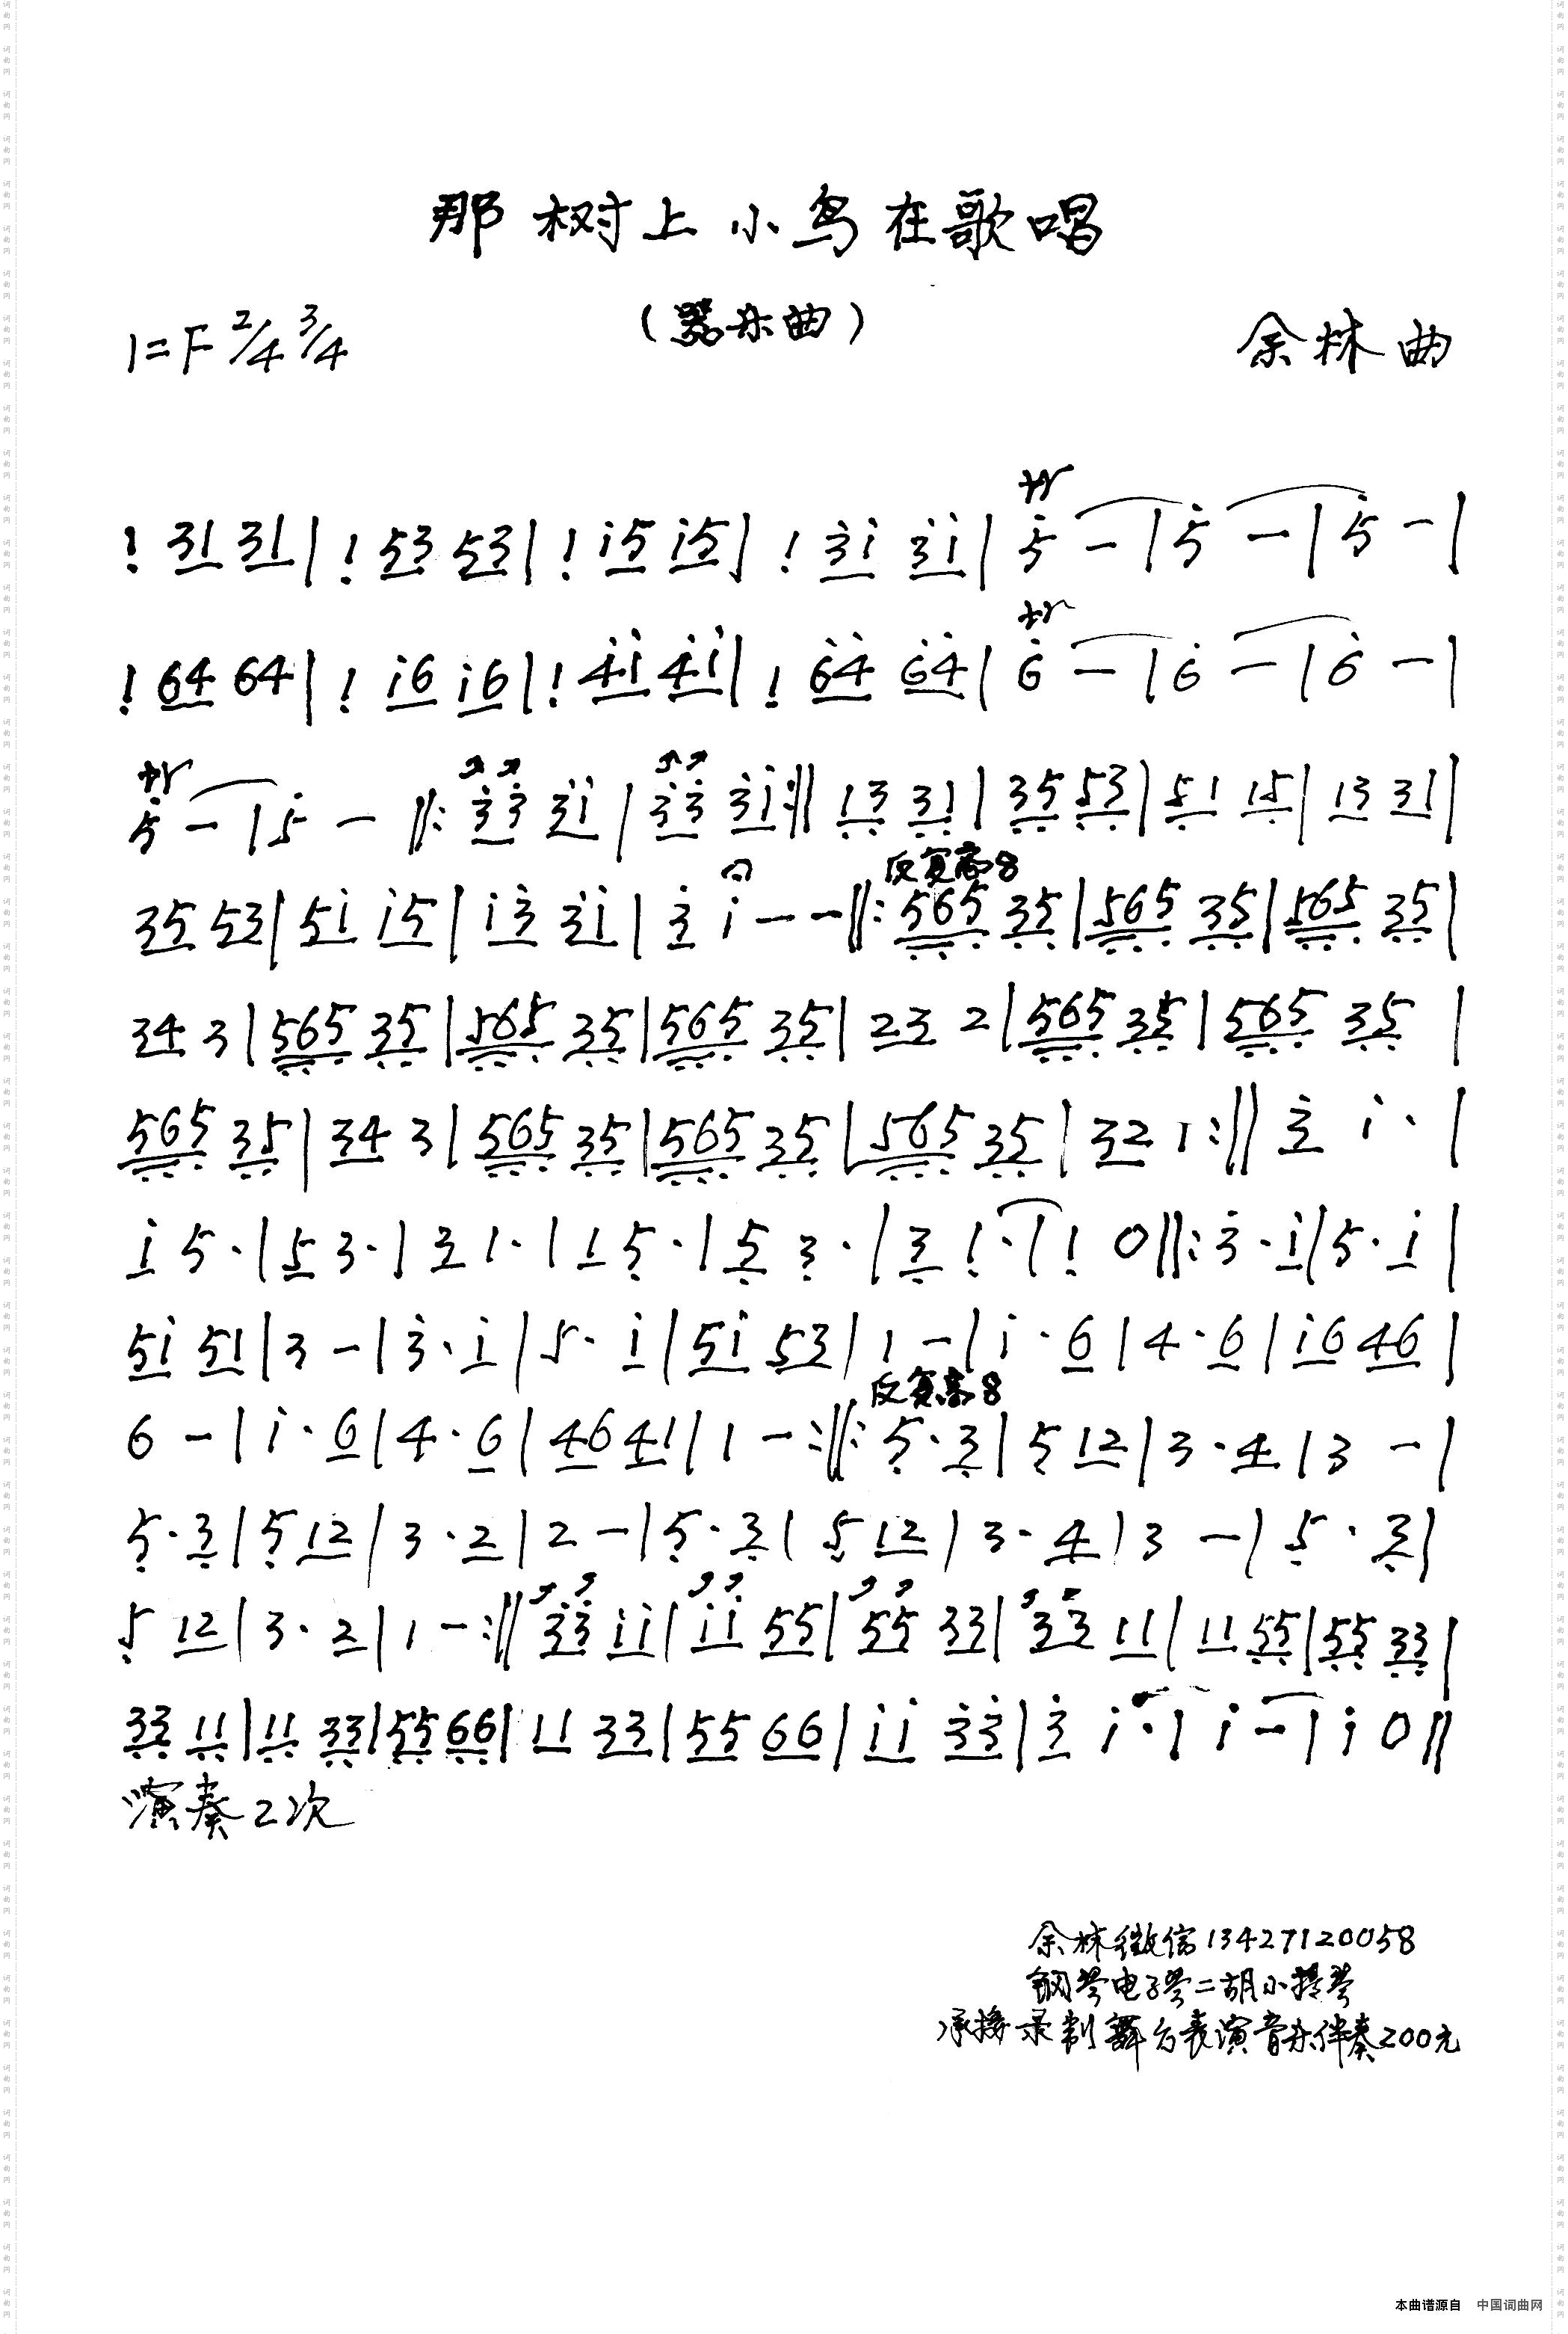 那树上小鸟在歌唱
(器乐曲)
1=F 2/4 3/4
余林 曲
tr
1̣ 31 31 | 1̣ 53 53 | 1̣ i5 i5 | 1̣ 3̇i 3̇i | 5̇ - | 5̇ - | 5̇ - |
tr
1̣ 64 64 | 1̣ i6 i6 | 1̣ 4̇i 4̇i | 1̣ 6̇4̇ 6̇4̇ | 6̇ - | 6̇ - | 6̇ - |
tr
5̇ - | 5̇ - ‖: 3̇3̇ 3̇i | 3̇3̇ 3̇i :‖ 1̣3̣ 3̣1̣ | 3̣5̣ 5̣3̣ | 5̣1 15̣ | 13 31 |
反复高8
35 53 | 5i i5 | i3̇ 3̇i | 3̇ i - - ‖: 5̣6̣5̣ 3̣5̣ | 5̣6̣5̣ 3̣5̣ | 5̣6̣5̣ 3̣5̣ |
34 3 | 5̣6̣5̣ 3̣5̣ | 5̣6̣5̣ 3̣5̣ | 5̣6̣5̣ 3̣5̣ | 23 2 | 5̣6̣5̣ 3̣5̣ | 5̣6̣5̣ 3̣5̣ |
5̣6̣5̣ 3̣5̣ | 34 3 | 5̣6̣5̣ 3̣5̣ | 5̣6̣5̣ 3̣5̣ | 5̣6̣5̣ 3̣5̣ | 32 1 :‖ 3̇ i · |
i 5 · | 5 3 · | 3 1 · | 1 5̣ · | 5̣ 3̣ · | 3̣ 1̣ · | 1̣ 0 ‖: 3̇ · i | 5 · i |
5i 51 | 3 - | 3̇ · i | 5 · i | 5i 53 | 1 - | i · 6 | 4 · 6 | i6 46 |
反复高8
6 - | i · 6 | 4 · 6 | 46 41 | 1 - :‖: 5̣ · 3̣ | 5̣ 12 | 3 · 4 | 3 - |
5̣ · 3̣ | 5̣ 12 | 3 · 2 | 2 - | 5̣ · 3̣ | 5̣ 12 | 3 · 4 | 3 - | 5̣ · 3̣ |
5̣ 12 | 3 · 2 | 1 - :‖ 3̇3̇ ii | ii 55 | 55 33 | 33 11 | 11 5̣5̣ | 5̣5̣ 3̣3̣ |
3̣3̣ 1̣1̣ | 1̣1̣ 3̣3̣ | 5̣5̣ 6̣6̣ | 11 33 | 55 66 | ii 3̇3̇ | 3̇ i · | i - | i 0 ‖
演奏2次
余林微信13427120058
钢琴电子琴二胡小提琴
承接录制舞台表演音乐伴奏200元
本曲谱源自 中国词曲网